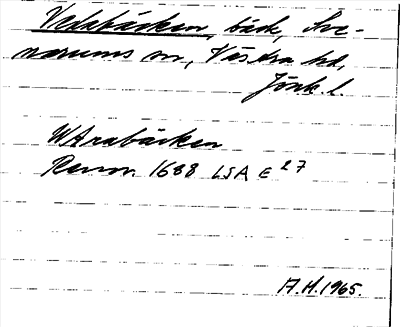 Vedabäcken, bäck, Sve-
narums sn, Västra hd,
Jönk. l.
WArabäcken
Renov. 1688 LSA E 27
A.H. 1965.